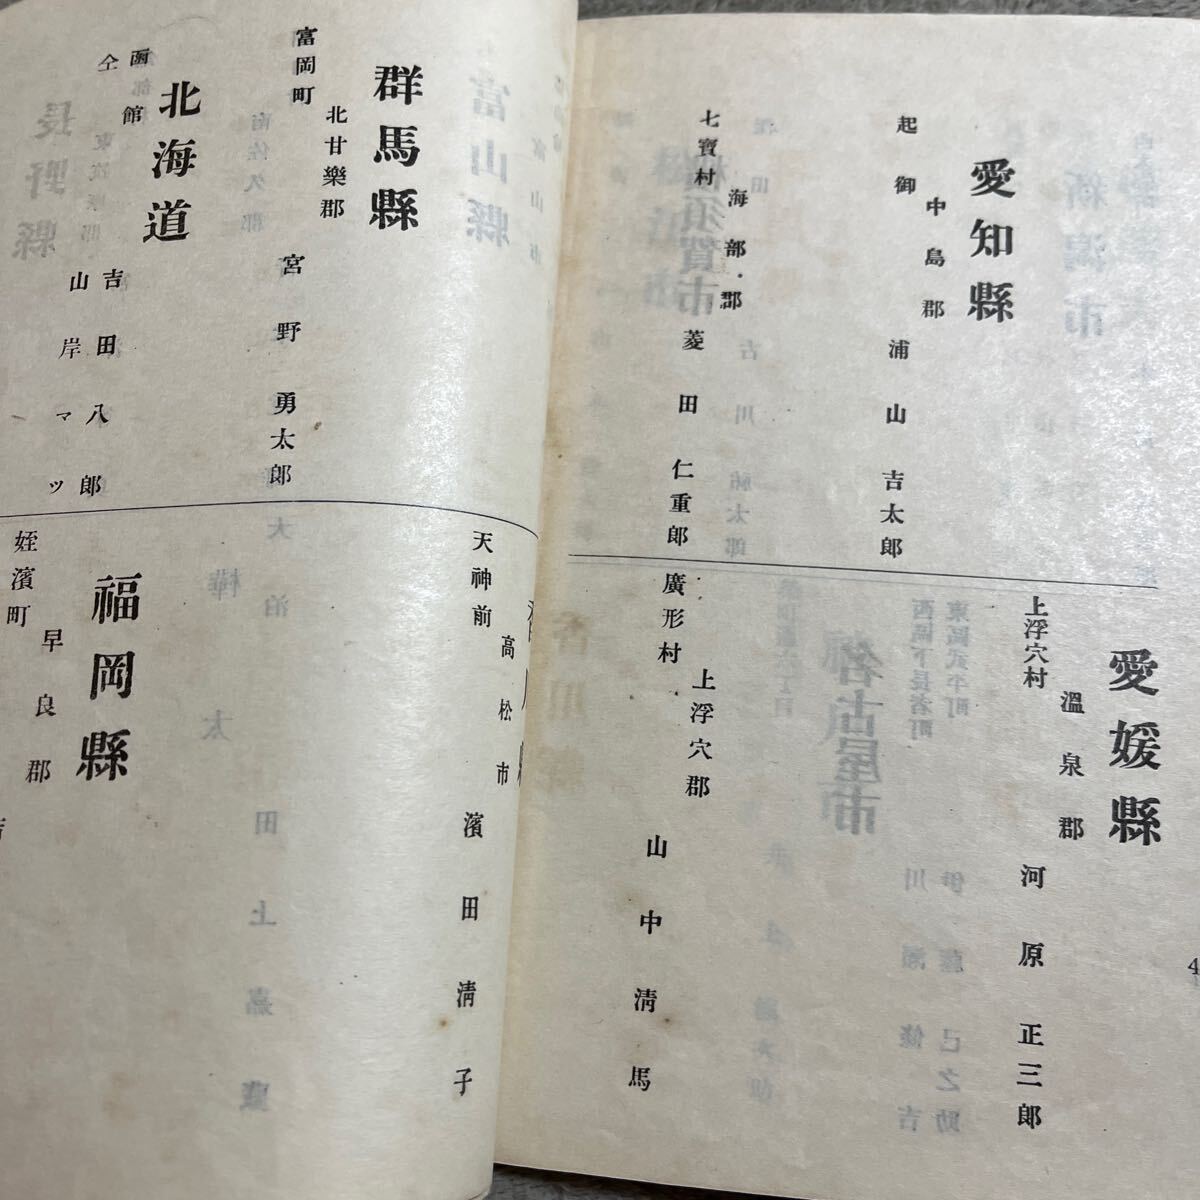 愛知縣
中島郡
起御 浦山吉太郎
海部郡
七寶村 菱田仁重郎
愛媛縣
溫泉郡
上浮穴村 河原正三郎
上浮穴郡
廣形村 山中淸馬
4
群馬縣
北甘樂郡
富岡町 宮野勇太郎
北海道
函館 吉田八郎
仝 山岸マツ
高松市
天神前 濱田淸子
福岡縣
早良郡
姪濱町